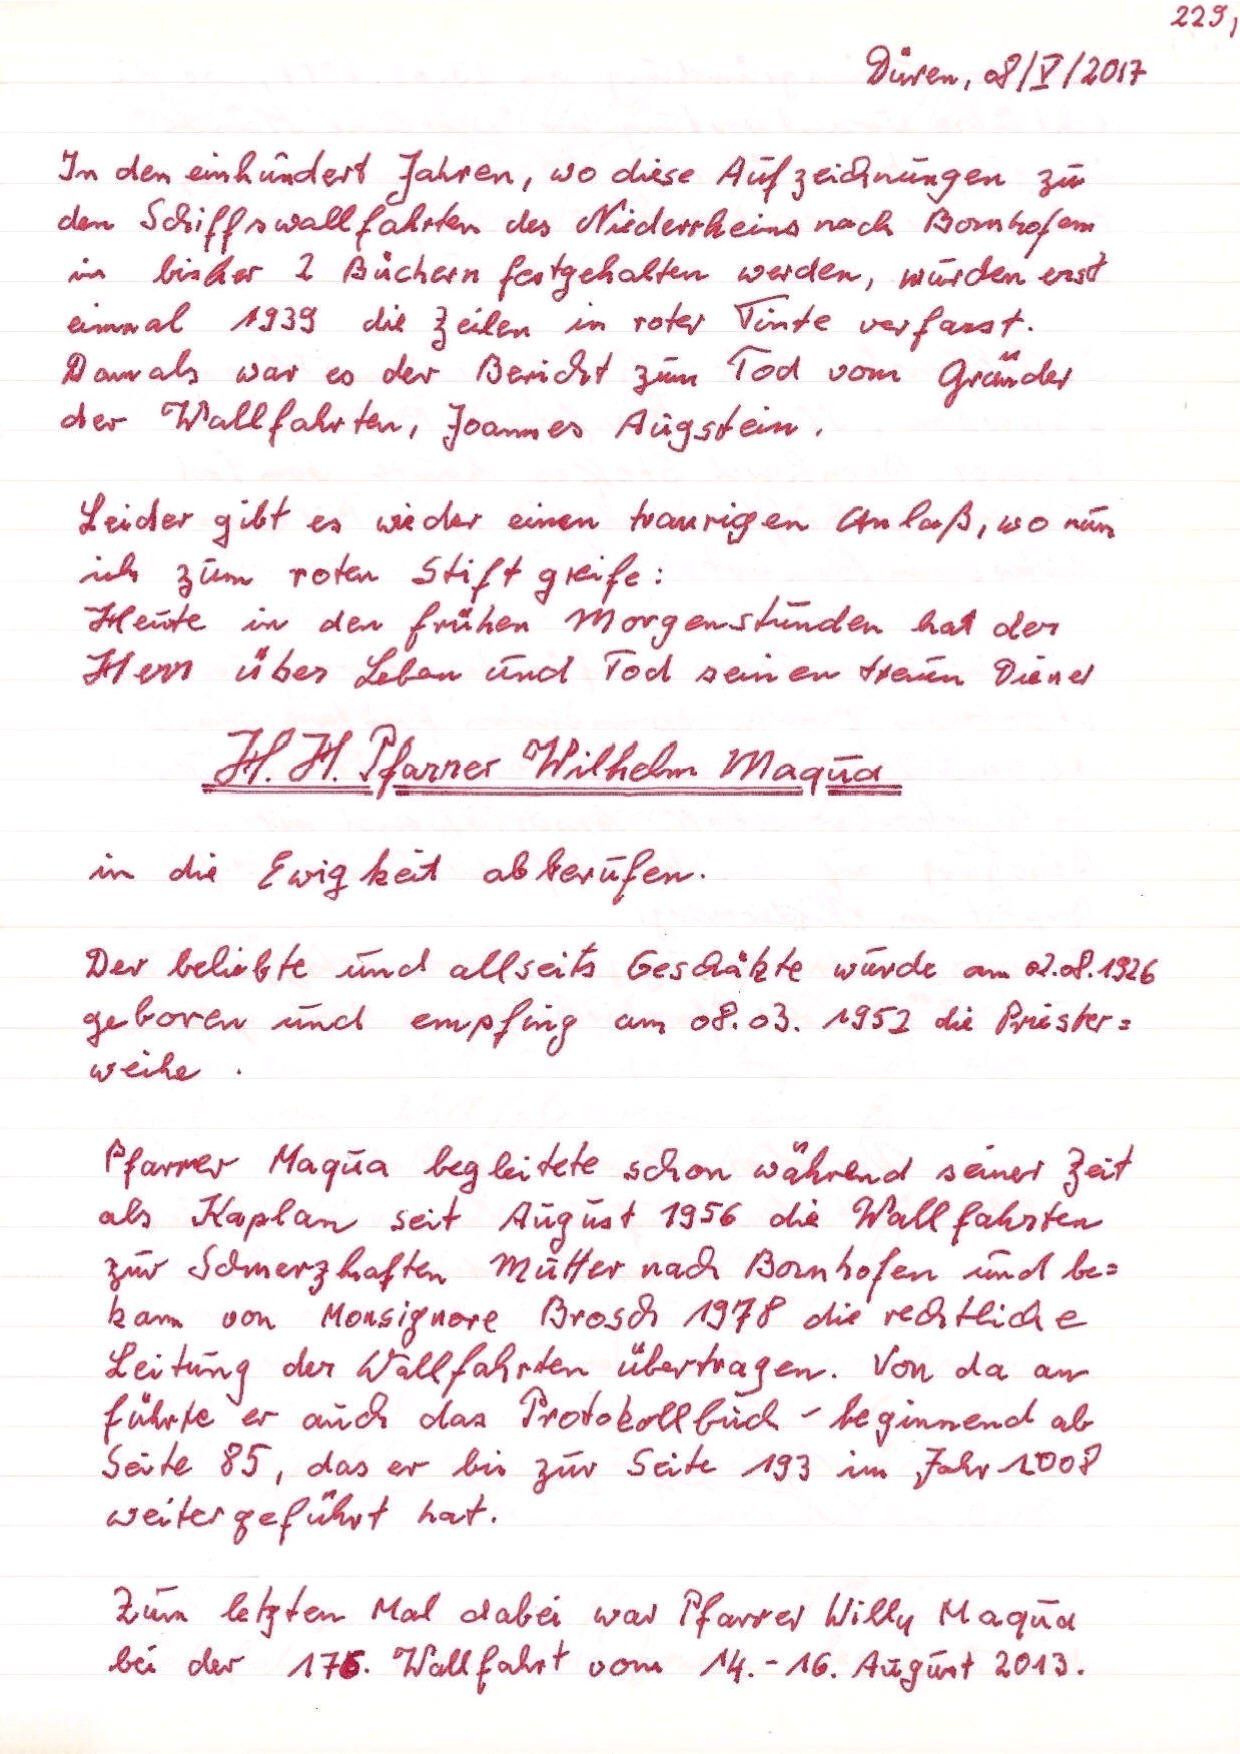 229,
Düren, 08/V/2017
In den einhundert Jahren, wo diese Aufzeichnungen zu
den Schiffswallfahrten des Niederrheins nach Bornhofen
in bisher 2 Büchern festgehalten werden, wurden erst
einmal 1939 die Zeilen in roter Tinte verfasst.
Damals war es der Bericht zum Tod vom Gründer
der Wallfahrten, Joannes Augstein.
Leider gibt es wieder einen traurigen Anlaß, wo nun
ich zum roten Stift greife:
Heute in den frühen Morgenstunden hat der
Herr über Leben und Tod seinen treuen Diener
H. H. Pfarrer Wilhelm Maqua
in die Ewigkeit abberufen.
Der beliebte und allseits Geschätzte wurde am 02.08.1926
geboren und empfing am 08.03.1952 die Priester=
weihe.
Pfarrer Maqua begleitete schon während seiner Zeit
als Kaplan seit August 1956 die Wallfahrten
zur Schmerzhaften Mutter nach Bornhofen und be=
kam von Monsignore Brosch 1978 die rechtliche
Leitung der Wallfahrten übertragen. Von da an
führte er auch das Protokollbuch - beginnend ab
Seite 85, das er bis zur Seite 193 im Jahr 2008
weitergeführt hat.
Zum letzten Mal dabei war Pfarrer Willy Maqua
bei der 176. Wallfahrt vom 14.-16. August 2013.